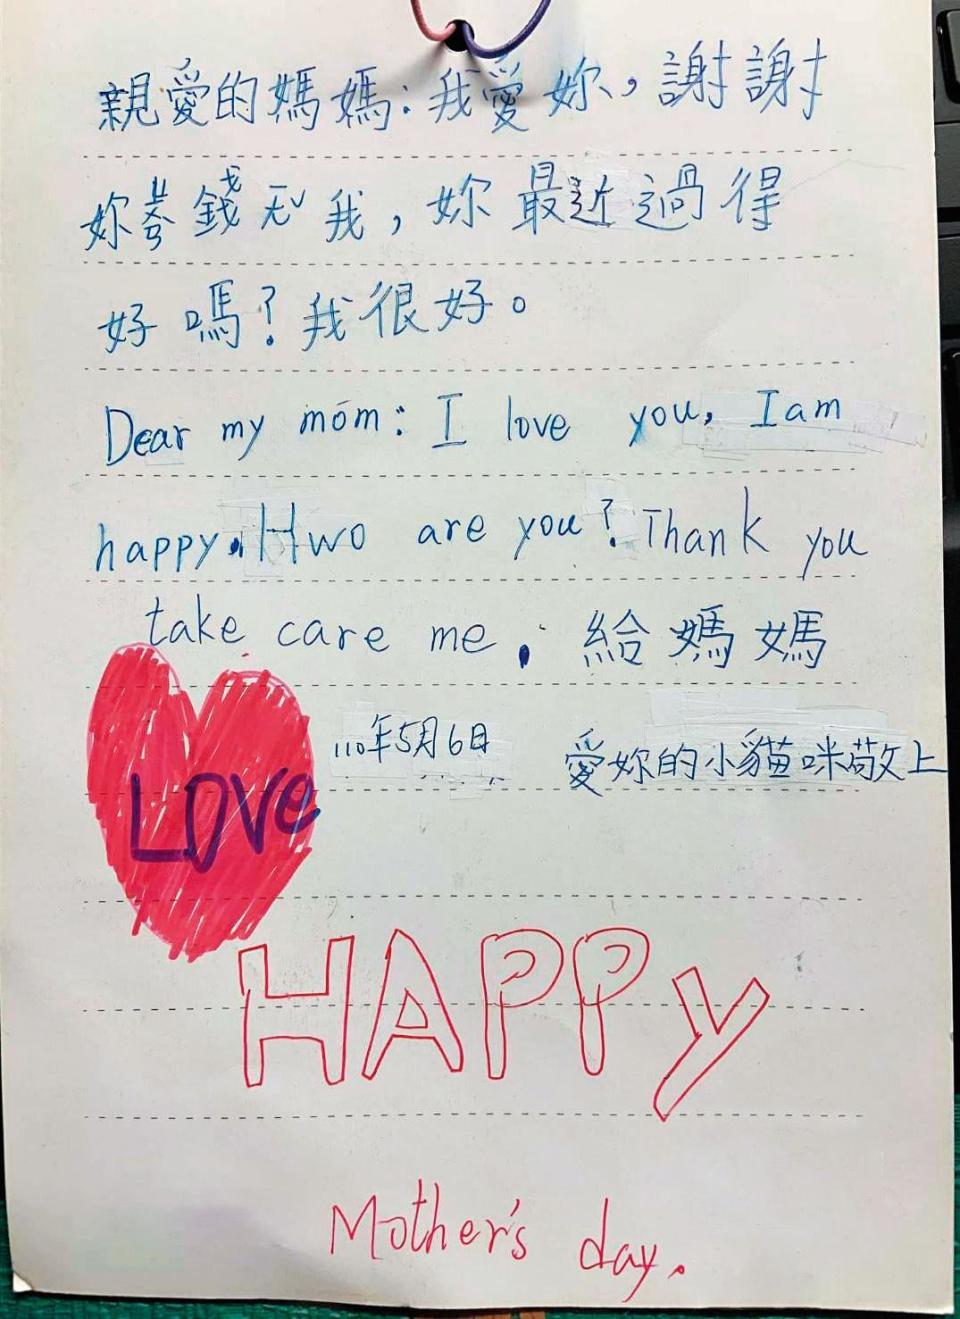 親愛的媽媽:我愛妳,謝謝
錢 我,妳最近過得
好嗎?我很好。
Dear my mom: I love you, I am
happy. Hwo are you? Thank you
take care me. 給媽媽
110年5月6日 愛妳的小貓咪敬上
LOVe
HAPPy
Mother's day.